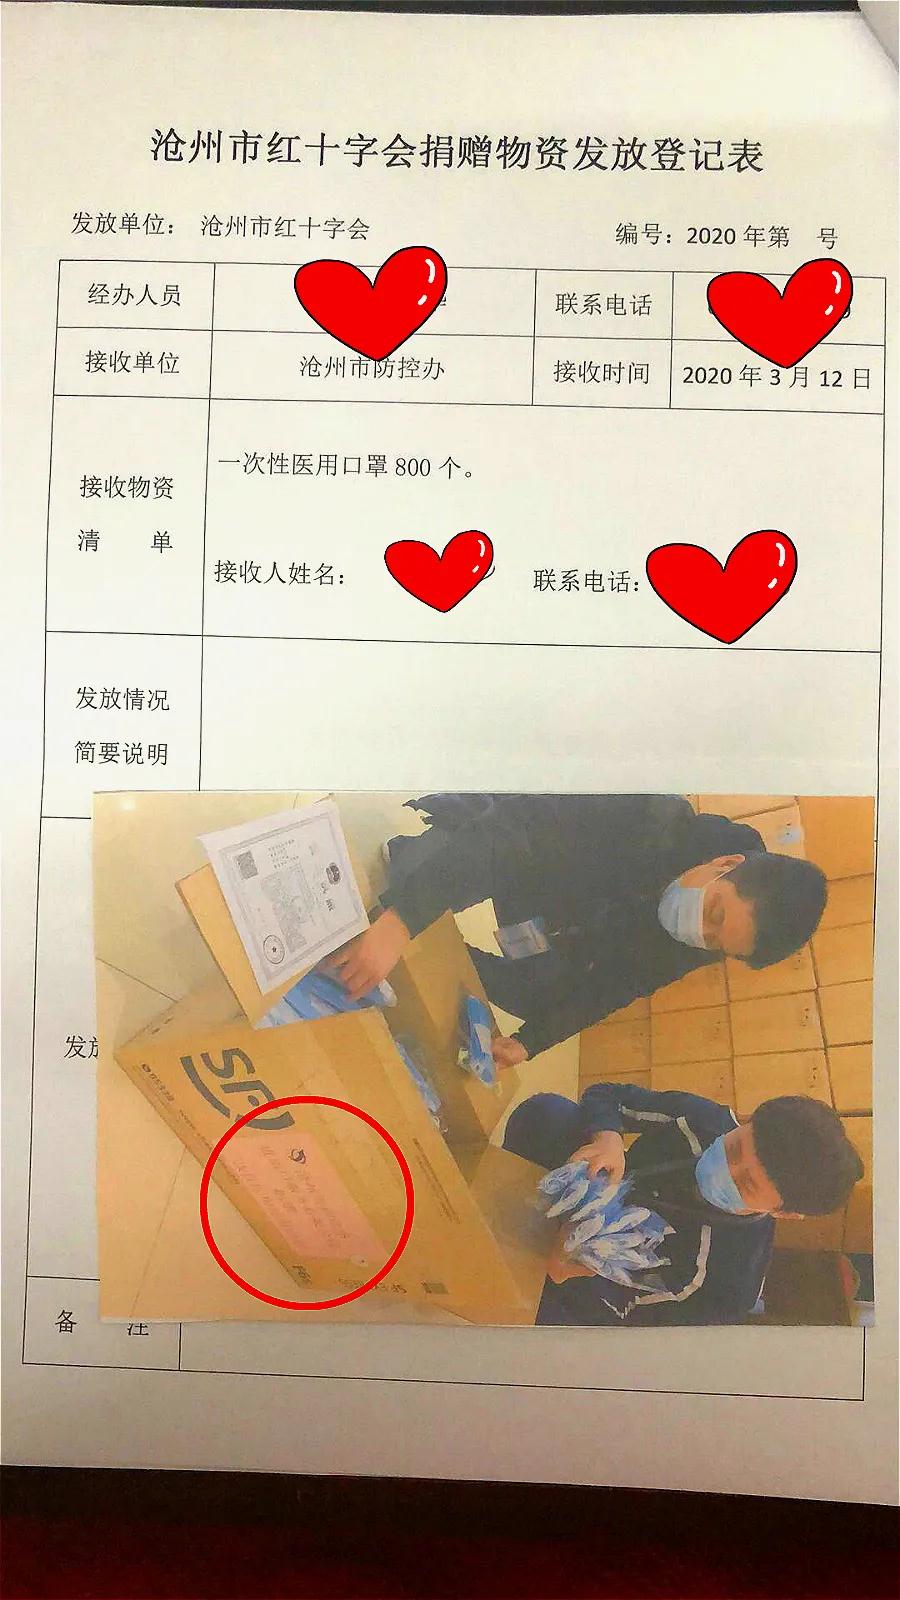 沧州市红十字会捐赠物资发放登记表
发放单位： 沧州市红十字会 编号：2020 年第 号
经办人员 联系电话
接收单位 沧州市防控办 接收时间 2020 年 3 月 12 日
接收物资
清 单
一次性医用口罩 800 个。
接收人姓名： 联系电话：
发放情况
简要说明
发放
备 注